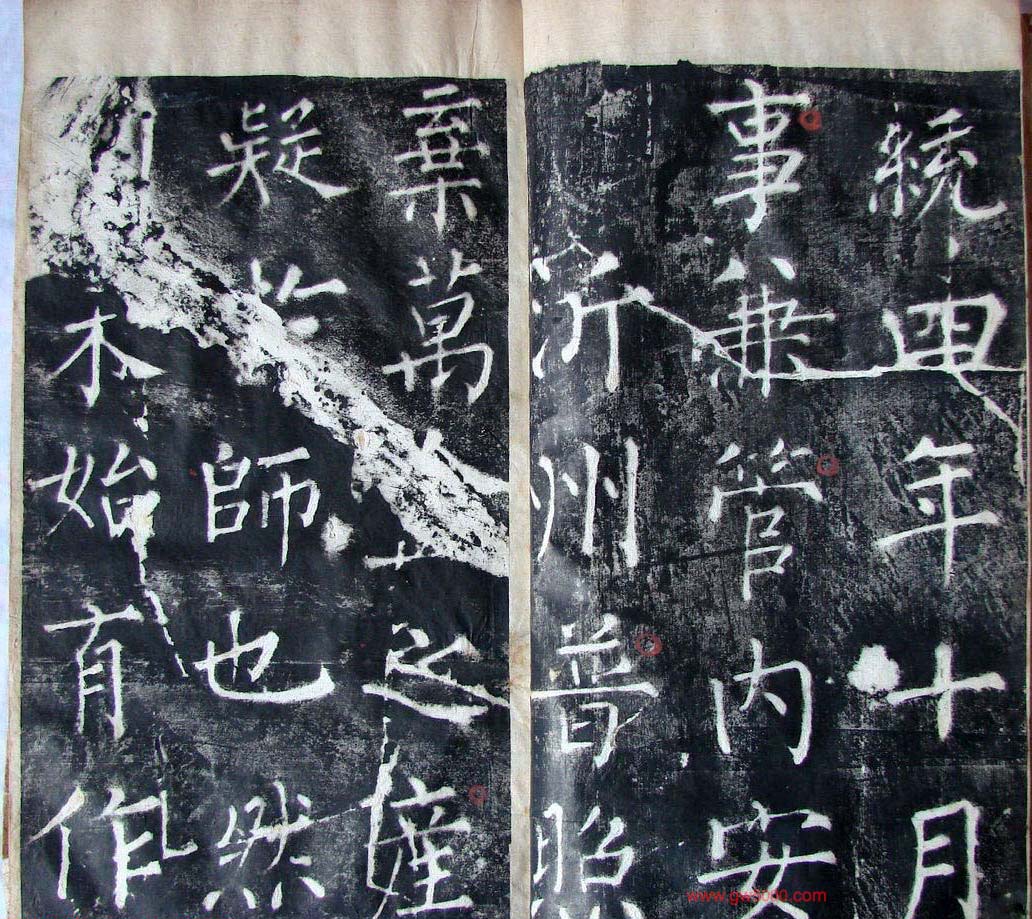 統四年十月
事兼管内安
沂州普照
棄萬之
疑於師也然
木始有作
www.gw3000.com